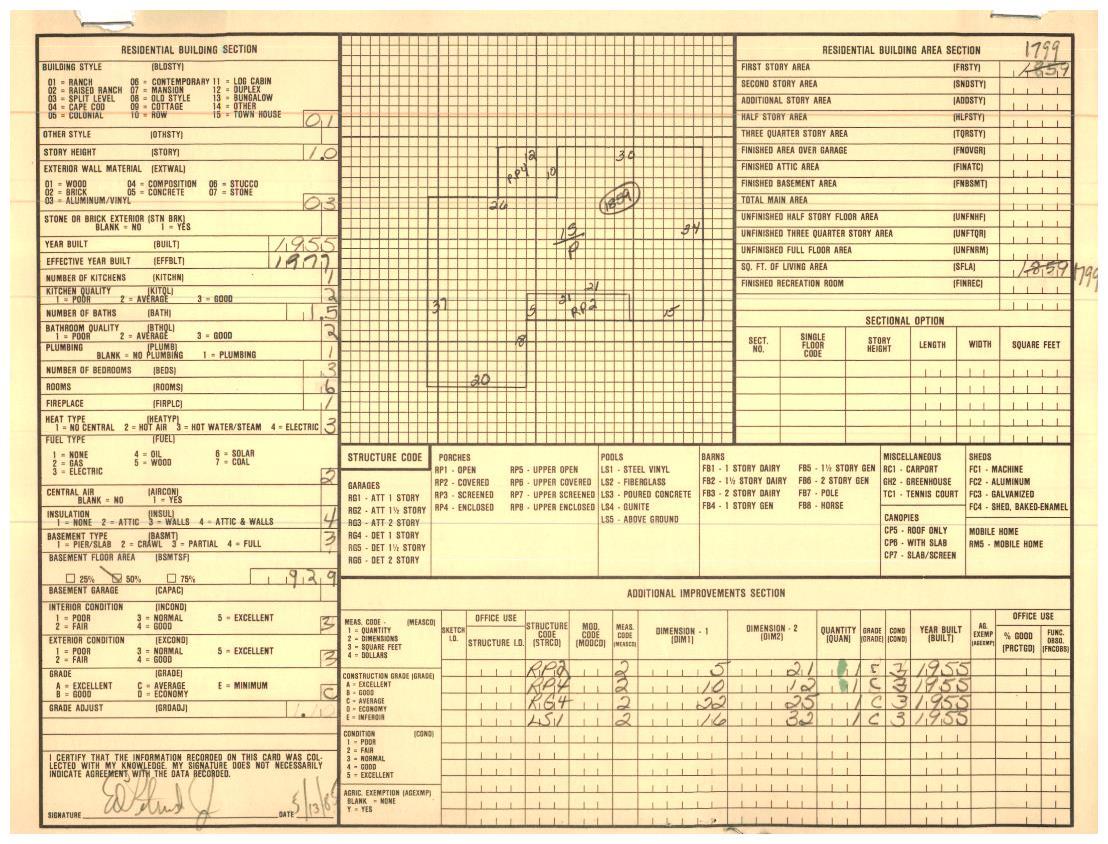 RESIDENTIAL BUILDING SECTION
BUILDING STYLE (BLDSTY)
01 = RANCH 06 = CONTEMPORARY 11 = LOG CABIN
02 = RAISED RANCH 07 = MANSION 12 = DUPLEX
03 = SPLIT LEVEL 08 = OLD STYLE 13 = BUNGALOW
04 = CAPE COD 09 = COTTAGE 14 = OTHER
05 = COLONIAL 10 = ROW 15 = TOWN HOUSE
01
OTHER STYLE (OTHSTY)
STORY HEIGHT (STORY) 1.0
EXTERIOR WALL MATERIAL (EXTWAL)
01 = WOOD 04 = COMPOSITION 06 = STUCCO
02 = BRICK 05 = CONCRETE 07 = STONE
03 = ALUMINUM/VINYL 03
STONE OR BRICK EXTERIOR (STN BRK)
BLANK = NO 1 = YES
YEAR BUILT (BUILT) 1955
EFFECTIVE YEAR BUILT (EFFBLT) 1977
NUMBER OF KITCHENS (KITCHN) 1
KITCHEN QUALITY (KITQL) 2
1 = POOR 2 = AVERAGE 3 = GOOD
NUMBER OF BATHS (BATH) 1.5
BATHROOM QUALITY (BTHQL) 2
1 = POOR 2 = AVERAGE 3 = GOOD
PLUMBING (PLUMB)
BLANK = NO PLUMBING 1 = PLUMBING 1
NUMBER OF BEDROOMS (BEDS) 3
ROOMS (ROOMS) 6
FIREPLACE (FIRPLC) 1
HEAT TYPE (HEATYP)
1 = NO CENTRAL 2 = HOT AIR 3 = HOT WATER/STEAM 4 = ELECTRIC 3
FUEL TYPE (FUEL)
1 = NONE 4 = OIL 6 = SOLAR
2 = GAS 5 = WOOD 7 = COAL
3 = ELECTRIC 2
CENTRAL AIR (AIRCON)
BLANK = NO 1 = YES
INSULATION (INSUL)
1 = NONE 2 = ATTIC 3 = WALLS 4 = ATTIC & WALLS 4
BASEMENT TYPE (BASMT)
1 = PIER/SLAB 2 = CRAWL 3 = PARTIAL 4 = FULL 3
BASEMENT FLOOR AREA (BSMTSF)
25% 50% 75% 929
BASEMENT GARAGE (CAPAC)
INTERIOR CONDITION (INCOND)
1 = POOR 3 = NORMAL 5 = EXCELLENT
2 = FAIR 4 = GOOD 3
EXTERIOR CONDITION (EXCOND)
1 = POOR 3 = NORMAL 5 = EXCELLENT
2 = FAIR 4 = GOOD 3
GRADE (GRADE)
A = EXCELLENT C = AVERAGE E = MINIMUM
B = GOOD D = ECONOMY C
GRADE ADJUST (GRDADJ) 1.10
I CERTIFY THAT THE INFORMATION RECORDED ON THIS CARD WAS COL-
LECTED WITH MY KNOWLEDGE. MY SIGNATURE DOES NOT NECESSARILY
INDICATE AGREEMENT WITH THE DATA RECORDED.
SIGNATURE DATE
12
30
RP4
10
26
1859
1S
P
24
37
21
5
21
RP2
15
18
20
RESIDENTIAL BUILDING AREA SECTION 1799
FIRST STORY AREA (FRSTY) 1859
SECOND STORY AREA (SNDSTY)
ADDITIONAL STORY AREA (ADDSTY)
HALF STORY AREA (HLFSTY)
THREE QUARTER STORY AREA (TQRSTY)
FINISHED AREA OVER GARAGE (FNOVGR)
FINISHED ATTIC AREA (FINATC)
FINISHED BASEMENT AREA (FNBSMT)
TOTAL MAIN AREA
UNFINISHED HALF STORY FLOOR AREA (UNFNHF)
UNFINISHED THREE QUARTER STORY AREA (UNFTQR)
UNFINISHED FULL FLOOR AREA (UNFNRM)
SQ. FT. OF LIVING AREA (SFLA) 1859 1799
FINISHED RECREATION ROOM (FINREC)
SECTIONAL OPTION
SECT. NO. SINGLE FLOOR CODE STORY HEIGHT LENGTH WIDTH SQUARE FEET
STRUCTURE CODE
GARAGES
RG1 - ATT 1 STORY
RG2 - ATT 1½ STORY
RG3 - ATT 2 STORY
RG4 - DET 1 STORY
RG5 - DET 1½ STORY
RG6 - DET 2 STORY
PORCHES
RP1 - OPEN RP5 - UPPER OPEN
RP2 - COVERED RP6 - UPPER COVERED
RP3 - SCREENED RP7 - UPPER SCREENED
RP4 - ENCLOSED RP8 - UPPER ENCLOSED
POOLS
LS1 - STEEL VINYL
LS2 - FIBERGLASS
LS3 - POURED CONCRETE
LS4 - GUNITE
LS5 - ABOVE GROUND
BARNS
FB1 - 1 STORY DAIRY FB5 - 1½ STORY GEN
FB2 - 1½ STORY DAIRY FB6 - 2 STORY GEN
FB3 - 2 STORY DAIRY FB7 - POLE
FB4 - 1 STORY GEN FB8 - HORSE
MISCELLANEOUS
RC1 - CARPORT
GH2 - GREENHOUSE
TC1 - TENNIS COURT
CANOPIES
CP5 - ROOF ONLY
CP6 - WITH SLAB
CP7 - SLAB/SCREEN
SHEDS
FC1 - MACHINE
FC2 - ALUMINUM
FC3 - GALVANIZED
FC4 - SHED, BAKED-ENAMEL
MOBILE HOME
RM5 - MOBILE HOME
ADDITIONAL IMPROVEMENTS SECTION
MEAS. CODE - (MEASCO)
1 = QUANTITY
2 = DIMENSIONS
3 = SQUARE FEET
4 = DOLLARS
CONSTRUCTION GRADE (GRADE)
A = EXCELLENT
B = GOOD
C = AVERAGE
D = ECONOMY
E = INFEROIR
CONDITION (COND)
1 = POOR
2 = FAIR
3 = NORMAL
4 = GOOD
5 = EXCELLENT
AGRIC. EXEMPTION (AGEXMP)
BLANK = NONE
Y = YES
SKETCH I.D. OFFICE USE STRUCTURE I.D. STRUCTURE CODE (STRCD) MOD. CODE (MODCD) MEAS. CODE (MEASCO) DIMENSION - 1 (DIM1) DIMENSION - 2 (DIM2) QUANTITY (QUAN) GRADE (GRADE) COND (COND) YEAR BUILT (BUILT) AG. EXEMP (AGEXMP) OFFICE USE % GOOD (PRCTGD) FUNC. OBSO. (FNCOBS)
RP2 2 5 21 1 3 1955
RP4 2 10 12 1 C 3 1955
RG4 2 22 25 1 C 3 1955
LS1 2 16 32 1 C 3 1955